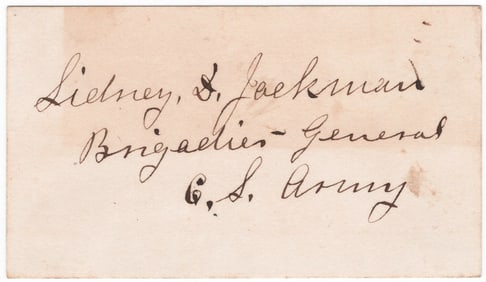 Sidney, D. Jackman
Brigadier General
C. S. Army